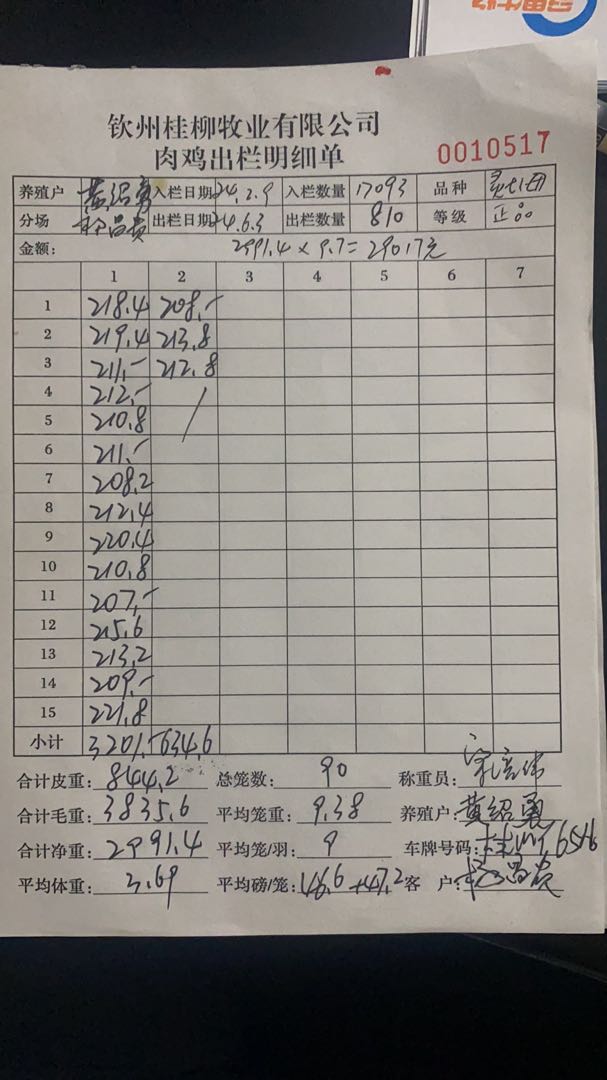 钦州桂柳牧业有限公司
肉鸡出栏明细单
0010517
养殖户 黄绍勇 入栏日期 24.2.9 入栏数量 17093 品种
分场 出栏日期 24.6.3 出栏数量 810 等级 正品
金额: 2991.4 × 9.7 = 29017元
1 2 3 4 5 6 7
1 218.4 208.-
2 219.4 213.8
3 211.- 212.8
4 212.-
5 210.8
6 211.-
7 208.2
8 212.4
9 220.4
10 210.8
11 207.-
12 215.6
13 213.2
14 209.-
15 221.8
小计 3201.- 634.6
合计皮重: 844.2 总笼数: 90 称重员:
合计毛重: 3835.6 平均笼重: 9.38 养殖户: 黄绍勇
合计净重: 2991.4 平均笼/羽: 9 车牌号码:
平均体重: 3.69 平均磅/笼: 46.6 +47.2 客 户: